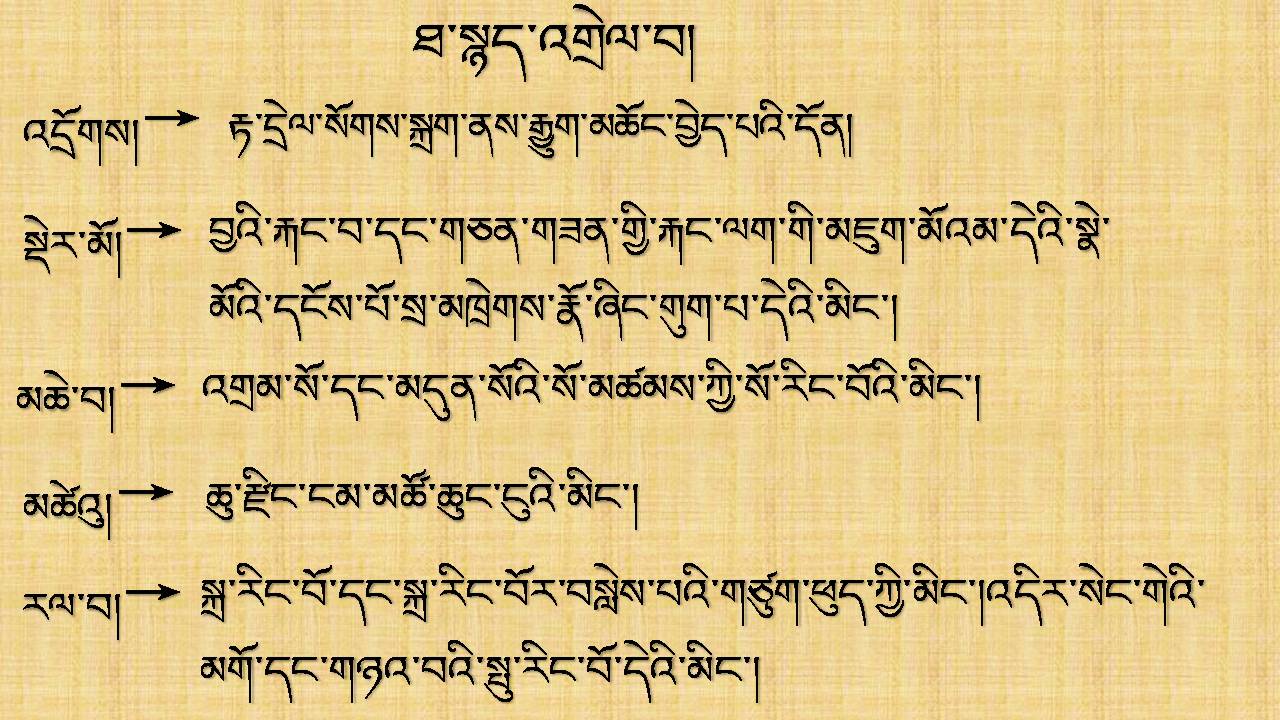 ཐ་སྙད་འགྲེལ་བ།
འདྲོགས། → རྟ་དྲེལ་སོགས་སྐྲག་ནས་རྒྱུག་མཆོང་བྱེད་པའི་དོན།
སྡེར་མོ། → བྱའི་རྐང་བ་དང་གཅན་གཟན་གྱི་རྐང་ལག་གི་མཇུག་མོའམ་དེའི་སྣེ་
མོའི་དངོས་པོ་སྲ་མཁྲེགས་རྣོ་ཞིང་གུག་པ་དེའི་མིང་།
མཆེ་བ། → འགྲམ་སོ་དང་མདུན་སོའི་སོ་མཚམས་ཀྱི་སོ་རིང་བོའི་མིང་།
མཚེའུ། → ཆུ་རྫིང་ངམ་མཚོ་ཆུང་ངུའི་མིང་།
རལ་བ། → སྐྲ་རིང་བོ་དང་སྐྲ་རིང་བོར་བསླེས་པའི་གཙུག་ཕུད་ཀྱི་མིང་།འདིར་སེང་གེའི་
མགོ་དང་གཉའ་བའི་སྤུ་རིང་བོ་དེའི་མིང་།